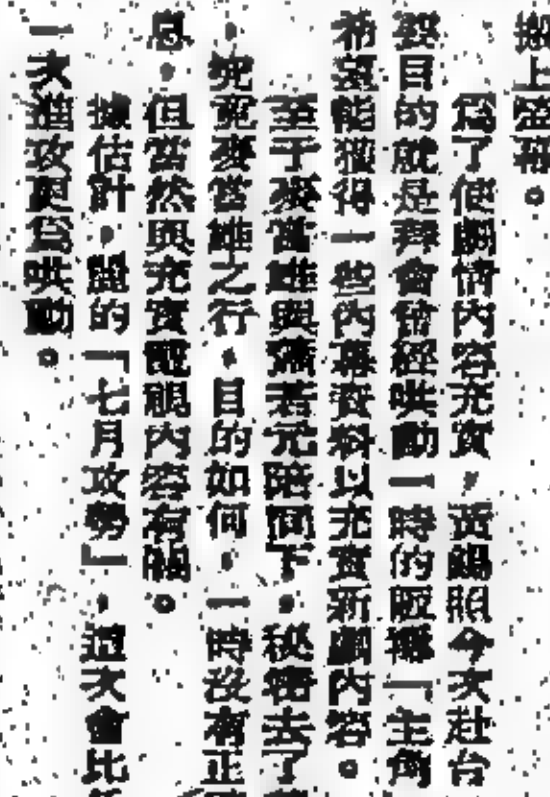 搬上螢幕。
爲了使劇情內容充實，黃錫照今次赴台
目的就是齊會曾經哄動一時的販「主角
希望能獲得一些內幕資料以充實新劇內容。
至于麥當雄與蕭若元陪同下，秘密去了
，究竟麥當雄之行，目的如何，一時沒有正
息，但當然與充實電視內容有關。
據估計，麗的「七月攻勢」，這次會比
一次進攻更爲哄動。